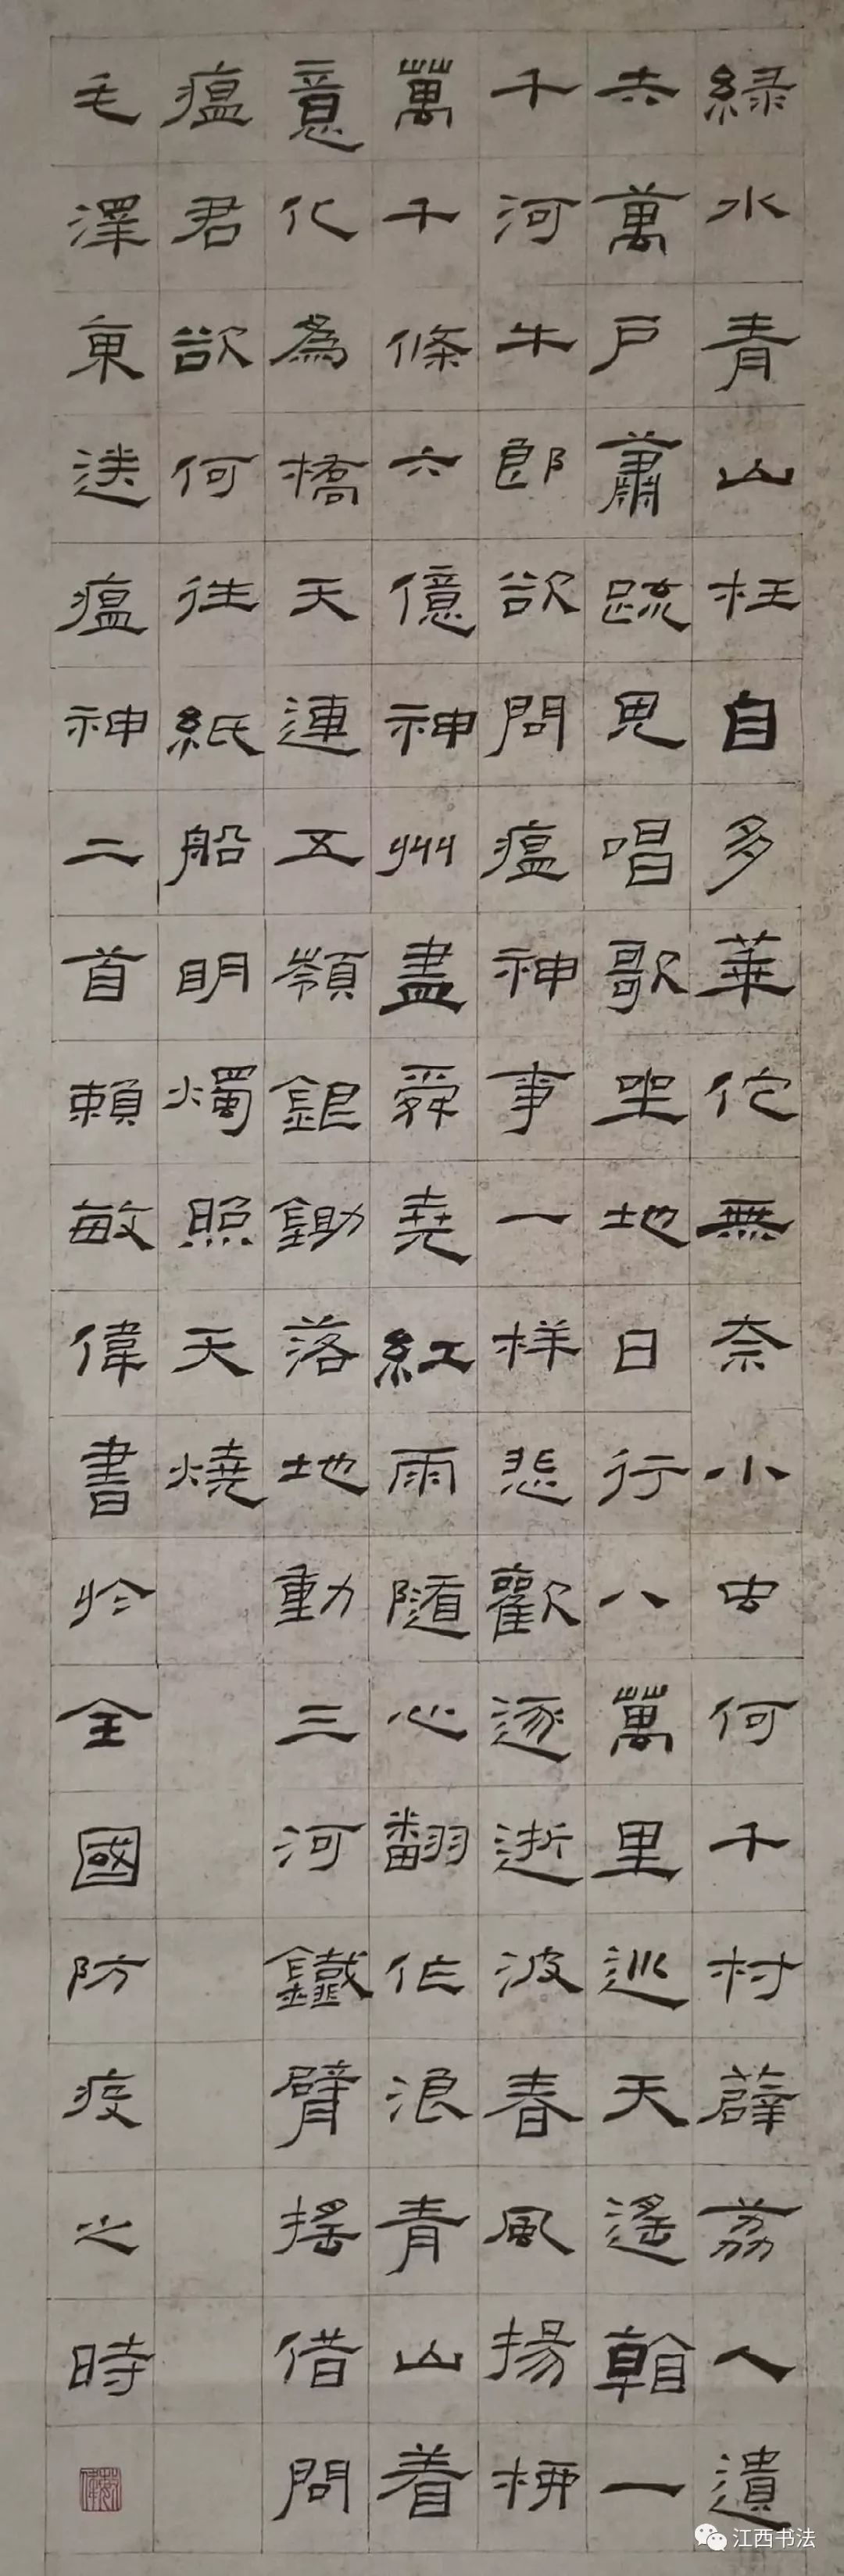 綠水青山枉自多華佗無奈小虫何千村薜荔人遺
矢萬戶蕭疏鬼唱歌坐地日行八萬里巡天遙看一
千河牛郎欲問瘟神事一样悲歡逐逝波春風揚柳
萬千條六億神州盡舜堯紅雨隨心翻作浪青山着
意化為橋天連五嶺銀鋤落地動三河鐵臂搖借問
瘟君欲何往紙船明燭照天燒
毛澤東送瘟神二首賴敏偉書於全國防疫之時
江西书法